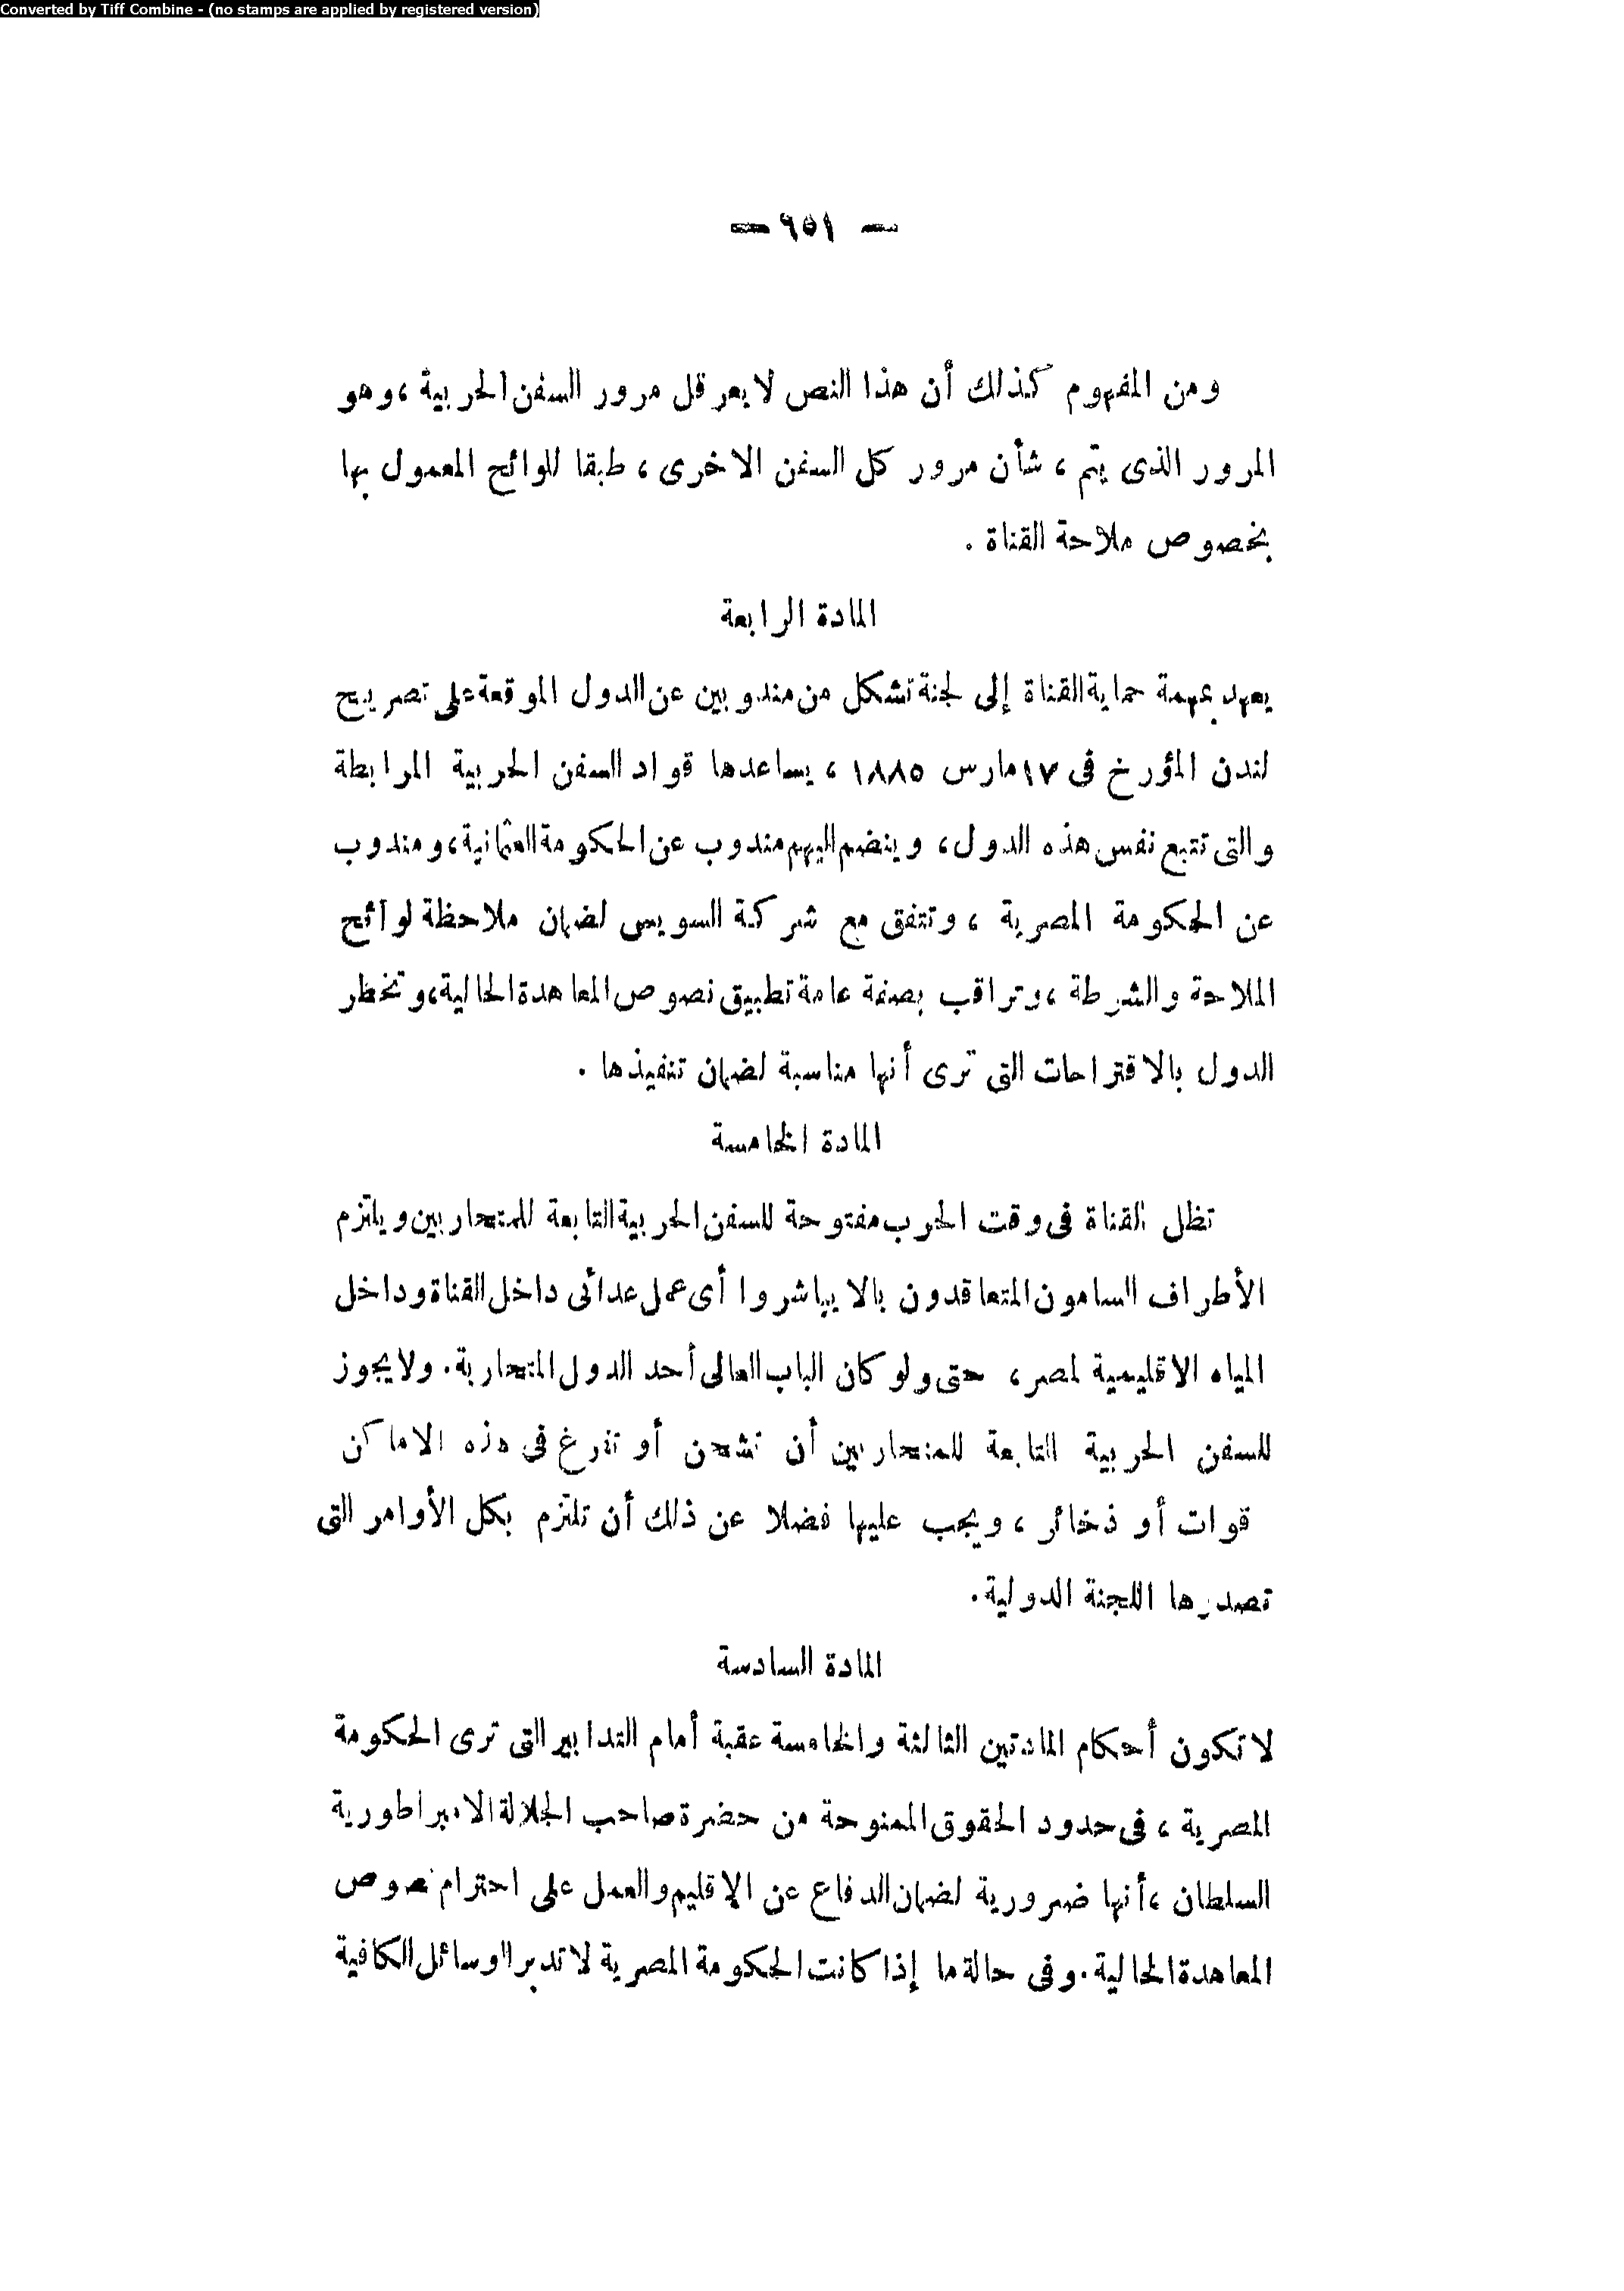 Converted by Tiff Combine - (no stamps are applied by registered version)
— ٦٥١ —
ومن المفهوم كذلك أن هذا النص لا يعرقل مرور السفن الحربية ، وهو
المرور الذى يتم ، شأن مرور كل السفن الاخرى ، طبقا للوائح المعمول بها
بخصوص ملاحة القناة .
المادة الرابعة
يعهد بمهمة حماية القناة إلى لجنة تشكل من مندوبين عن الدول الموقعة على تصريح
لندن المؤرخ فى ١٧ مارس ١٨٨٥ ، يساعدها قواد السفن الحربية المرابطة
والتى تتبع نفس هذه الدول ، وينضم اليهم مندوب عن الحكومة العثمانية ، ومندوب
عن الحكومة المصرية ، وتتفق مع شركة السويس لضمان ملاحظة لوائح
الملاحة والشرطة ، وتراقب بصفة عامة تطبيق نصوص المعاهدة الحالية ، وتخطر
الدول بالاقتراحات التى ترى أنها مناسبة لضمان تنفيذها .
المادة الخامسة
تظل القناة فى وقت الحرب مفتوحة للسفن الحربية التابعة للمتحاربين ويلتزم
الأطراف السامون المتعاقدون بالا يباشروا أى عمل عدائى داخل القناة وداخل
المياه الاقليمية لمصر ، حتى ولو كان الباب العالى أحد الدول المتحاربة . ولا يجوز
للسفن الحربية التابعة للمتحاربين أن تشحن أو تفرغ فى هذه الاماكن
قوات أو ذخائر ، ويجب عليها فضلا عن ذلك أن تلتزم بكل الأوامر التى
تصدرها اللجنة الدولية .
المادة السادسة
لا تكون أحكام المادتين الثالثة والخامسة عقبة أمام التدابير التى ترى الحكومة
المصرية ، فى حدود الحقوق الممنوحة من حضرة صاحب الجلالة الامبراطورية
السلطان ، أنها ضرورية لضمان الدفاع عن الإقليم والعمل على احترام نصوص
المعاهدة الحالية . وفى حالة ما إذا كانت الحكومة المصرية لا تدبر الوسائل الكافية